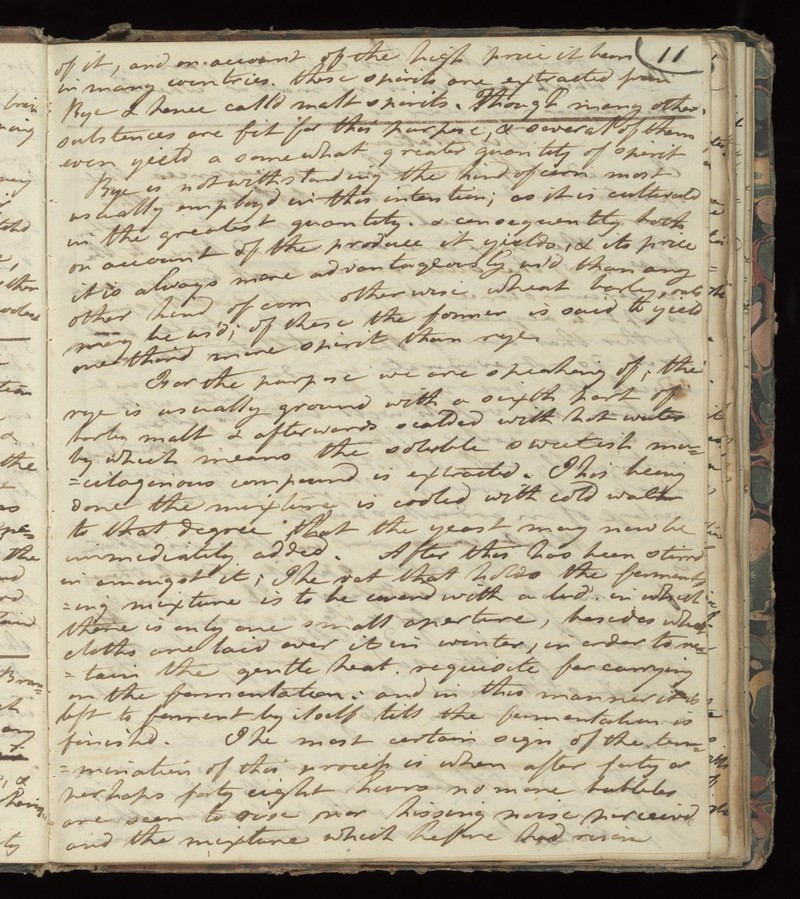 11
of it, and on account of the high price it bears
in many countries. these spirits are extracted from
Rye & hence calld malt spirits. Though many other
substences are fit for this purpose, & several of them
even yield a somewhat greater quantity of spirit
Rye is notwithstanding the kind of corn most
usually employd in this intention; as it is cultivatd
in the greatest quantity. & consequently both
on account of the produce it yields, & its price
it is always more advantageously usd than any
other kind of corn otherwise wheat barley, oats
may be usd; of these the former is said to yield
one third more spirit than rye.
For the purpose we are speaking of, the
rye is usually ground with a sixth part of
barley malt & afterwards scalded with hot water
by which means the soluble sweetish mu=
=cilagenous compound is extracted. This being
done the mixture is cooled with cold water
to that degree that the yeast may now be
immediately added. After this has been stirrd
in amongst it; The vat that holds the ferment=
=ing mixture is to be coverd with a lid. in which
there is only one small aperture, besides which
cloths are laid over it in winter, in order to re=
=tain the gentle heat. requisite for carrying
on the fermentation: and in this manner it is
left to ferment by itself till the fermentation is
finishd. The most certain sign of the ter=
=mination of this process is when after forty or
perhaps forty eight hours no more bubbles
are seen to rise nor hissing noise perceivd
and the mixture which before had risen